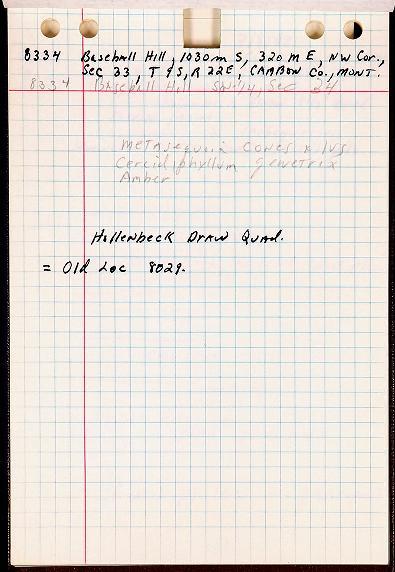 8334 Baseball Hill, 1030 m S, 320 m E, NW Cor.,
Sec 33, T 9 S, R 22 E, CARBON Co., MONT.
8334 Baseball Hill SW 1/4, Sec 34
Metasequoia cones & lvs
Cercidiphyllum genetrix
Amber
Hollenbeck Draw Quad.
= Old Loc 8029.